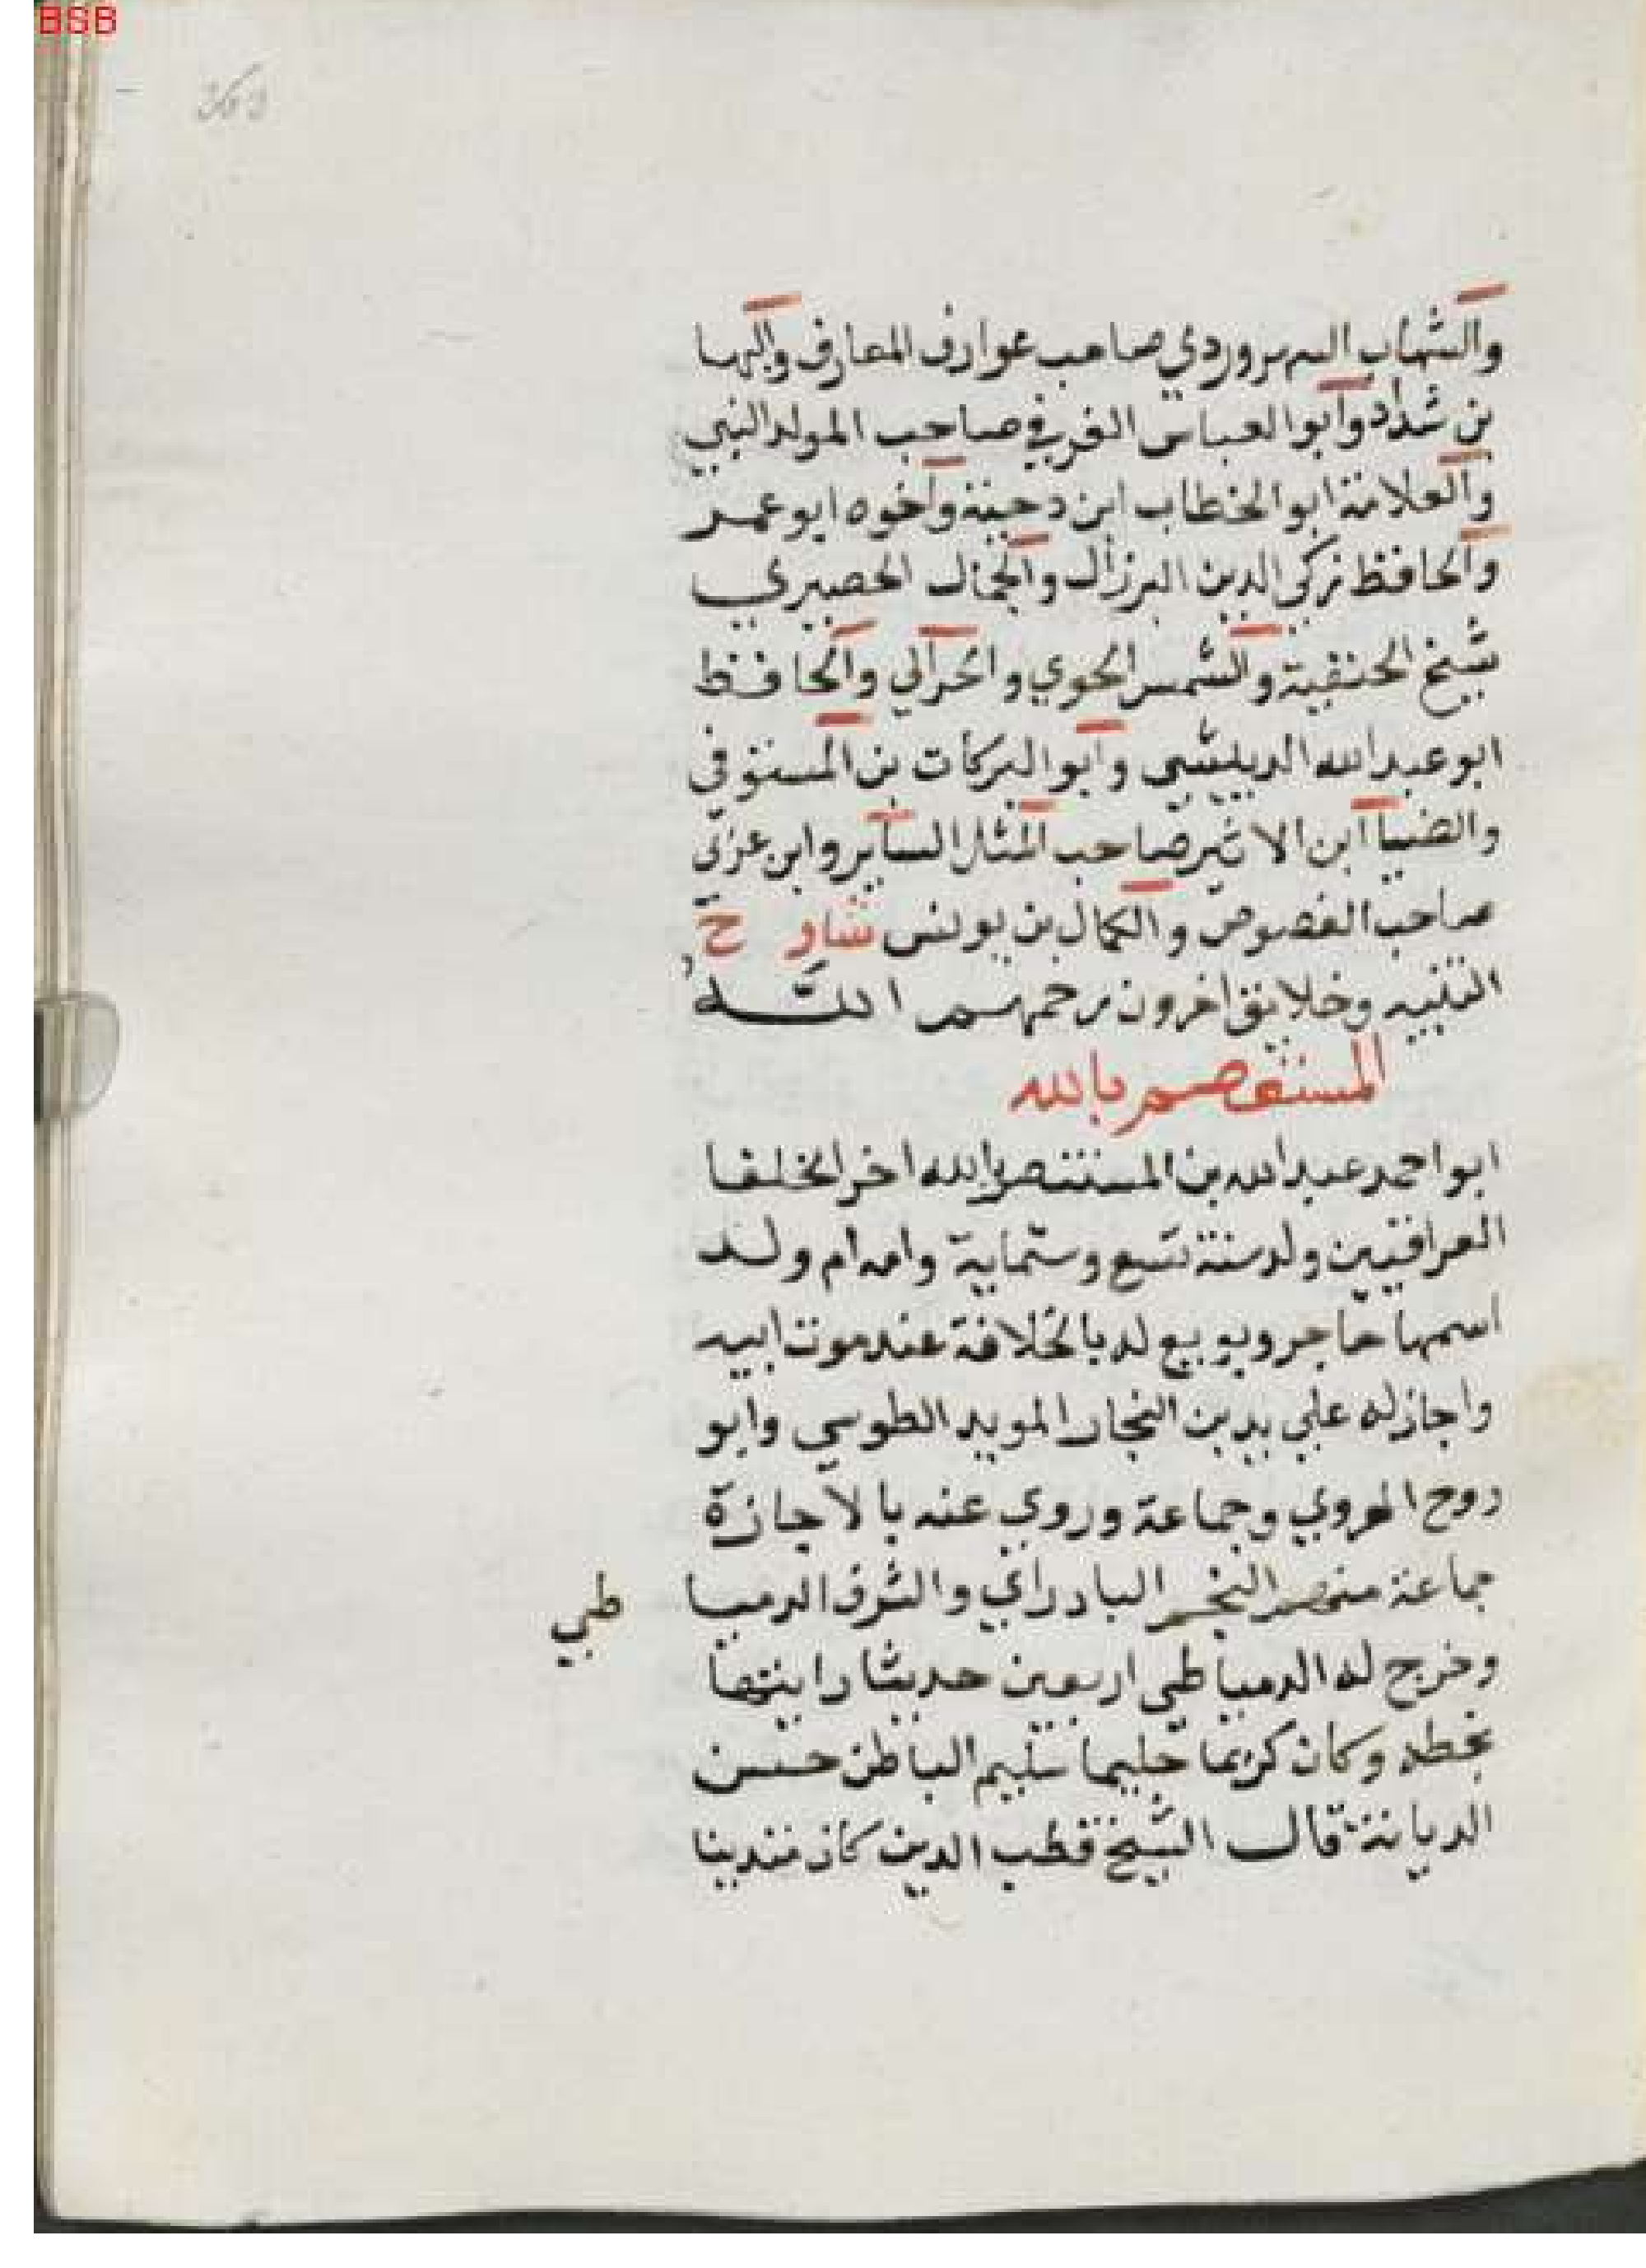 BSB
والشهاب السهروردي صاحب عوارف المعارف والبها
بن شداد وابو العباس العزفي صاحب المولد النبي
والعلامة ابو الخطاب ابن دحية واخوه ابو عمر
والحافظ زكي الدين البرزال والجمال الحصيري
شيخ الحنفية والشمس الحوي والحرالي والحافظ
ابو عبد الله الدبيثي وابو البركات بن المستوفي
والضيا ابن الاثير صاحب المثل الساير وابن عربي
صاحب الفصوص والكمال بن يونس شارح
التنبيه وخلايق اخرون رحمهم الله
المستعصم بالله
ابو احمد عبد الله بن المستنصر بالله اخر الخلفا
العراقيين ولد سنة تسع وستماية وامه ام ولد
اسمها هاجر وبويع له بالخلافة عند موت ابيه
واجاز له علي يد بن النجار المويد الطوسي وابو
روح الهروي وجماعة وروي عنه بالاجازة
جماعة منهم النجم البادراي والشرف الدميا طي
وخرج له الدمياطي اربعين حديثا رايتها
بخطه وكان كريما حليما سليم الباطن حسن
الديانة قال الشيخ قطب الدين كان متدينا